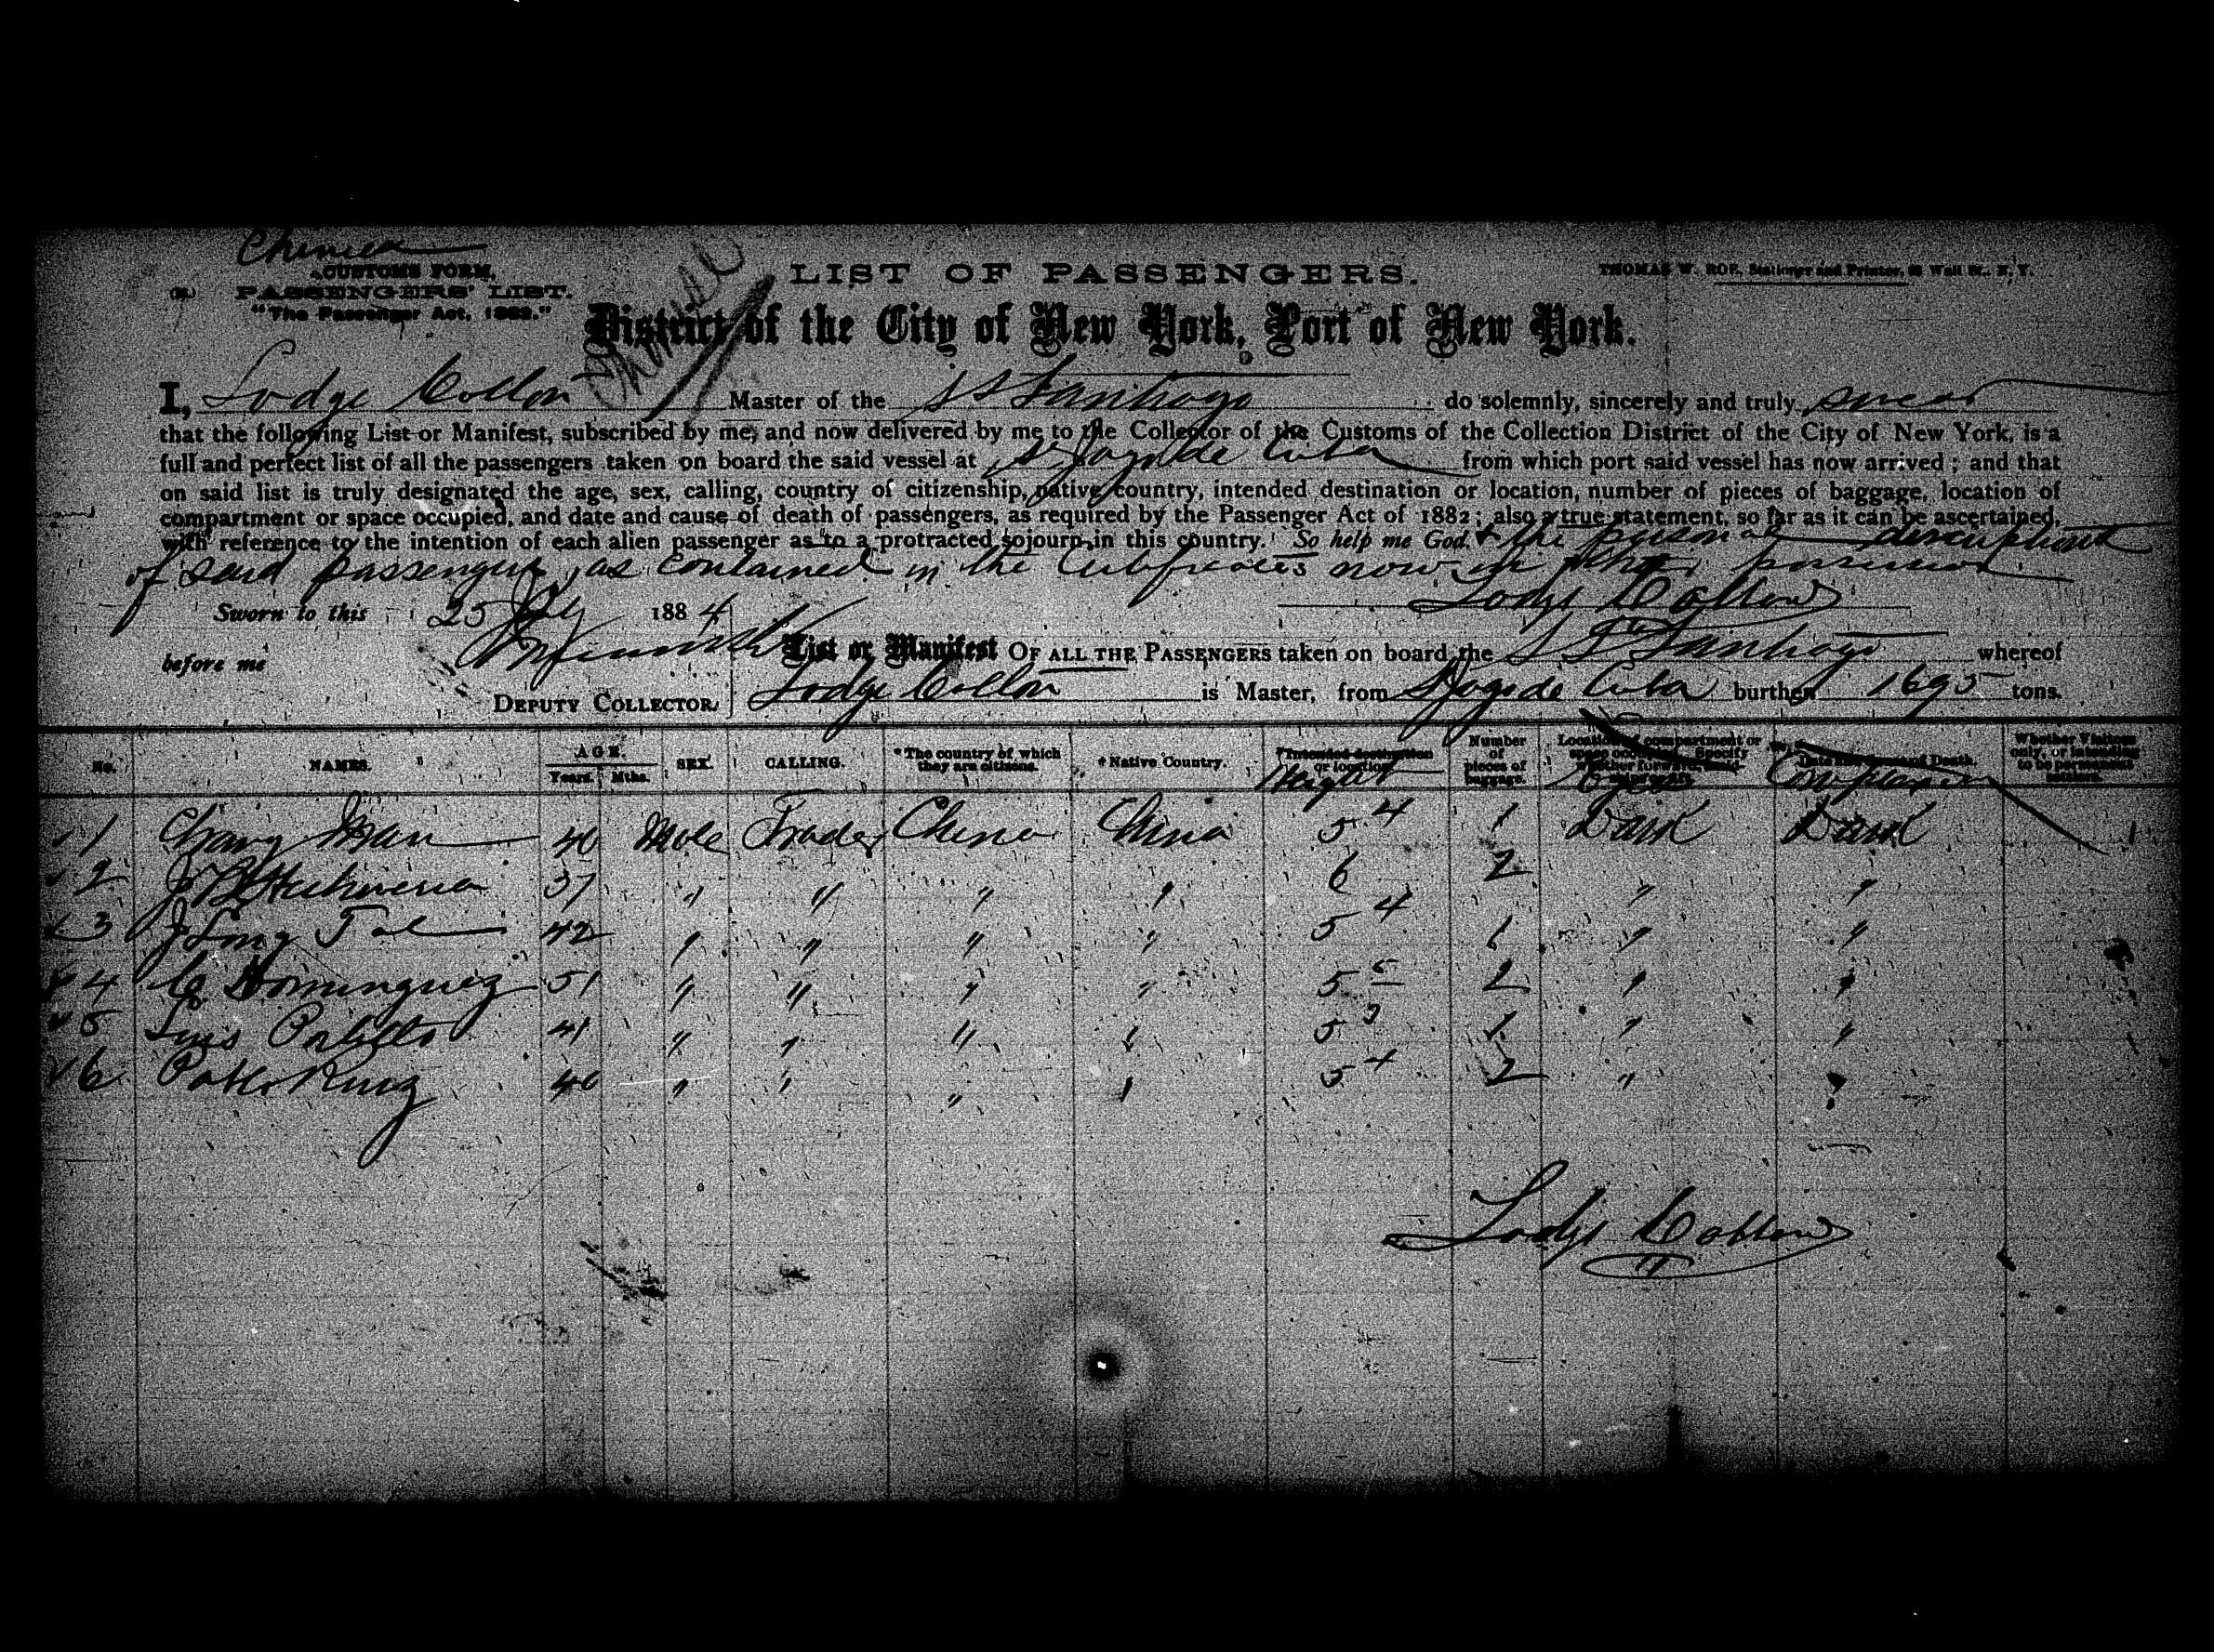 Chinese
CUSTOMS FORM,
PASSENGERS' LIST.
"The Passenger Act, 1882."
Chinese
LIST OF PASSENGERS.
THOMAS W. ROE, Stationer and Printer, Wall St., N. Y.
District of the City of New York, Port of New York.
I, Lodge Colton Master of the SS Santiago do solemnly, sincerely and truly swear
that the following List or Manifest, subscribed by me, and now delivered by me to the Collector of the Customs of the Collection District of the City of New York, is a
full and perfect list of all the passengers taken on board the said vessel at St Jago de Cuba from which port said vessel has now arrived; and that
on said list is truly designated the age, sex, calling, country of citizenship, native country, intended destination or location, number of pieces of baggage, location of
compartment or space occupied, and date and cause of death of passengers, as required by the Passenger Act of 1882; also a true statement, so far as it can be ascertained,
with reference to the intention of each alien passenger as to a protracted sojourn in this country. So help me God. & the personal descriptions
of said passengers, as contained in the Certificates now in their possession.
Sworn to this 25 July 1884 Lodge Colton
before me
List or Manifest OF ALL THE PASSENGERS taken on board the SS Santiago whereof
DEPUTY COLLECTOR. Lodge Colton is Master, from St Jago de Cuba burthen 1695 tons.
No. NAMES. AGE. Years. Mths. SEX. CALLING. *The country of which they are citizens. †Native Country. Intended destination or location. Height Number of pieces of baggage. Location of compartment or space occupied. Eyes Date and Cause of Death. Complexion Whether Visitors only, or intending to be permanent
1 Chang Man 40 Male Trader China China 5 4 1 Dark Dark
2 J B Hecheveria 37 " " " " 6 2 " "
3 J Long Tal 42 " " " " 5 4 1 " "
4 C Dominguez 51 " " " " 5 5 2 " "
5 Luis 41 " " " " 5 3 1 " "
6 Pablo Ruiz 40 " " " " 5 4 2 " "
Lodge Colton